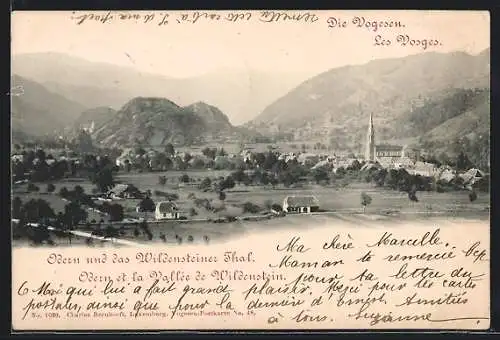 Die Vogesen.
Les Vosges.
Odern und das Wildensteiner Thal.
Odern et la Vallée de Wildenstein.
No. 1020. Charles Bernhoeft, Luxemburg. Vogesen-Postkarte No. 48.
Ma chère Marcelle.
Maman te remercie bcp.
pour ta lettre du
6 Mai qui lui a fait grand plaisir, merci pour les cartes
postales, ainsi que pour la dernière d'
Amitiés
à tous. Suzanne